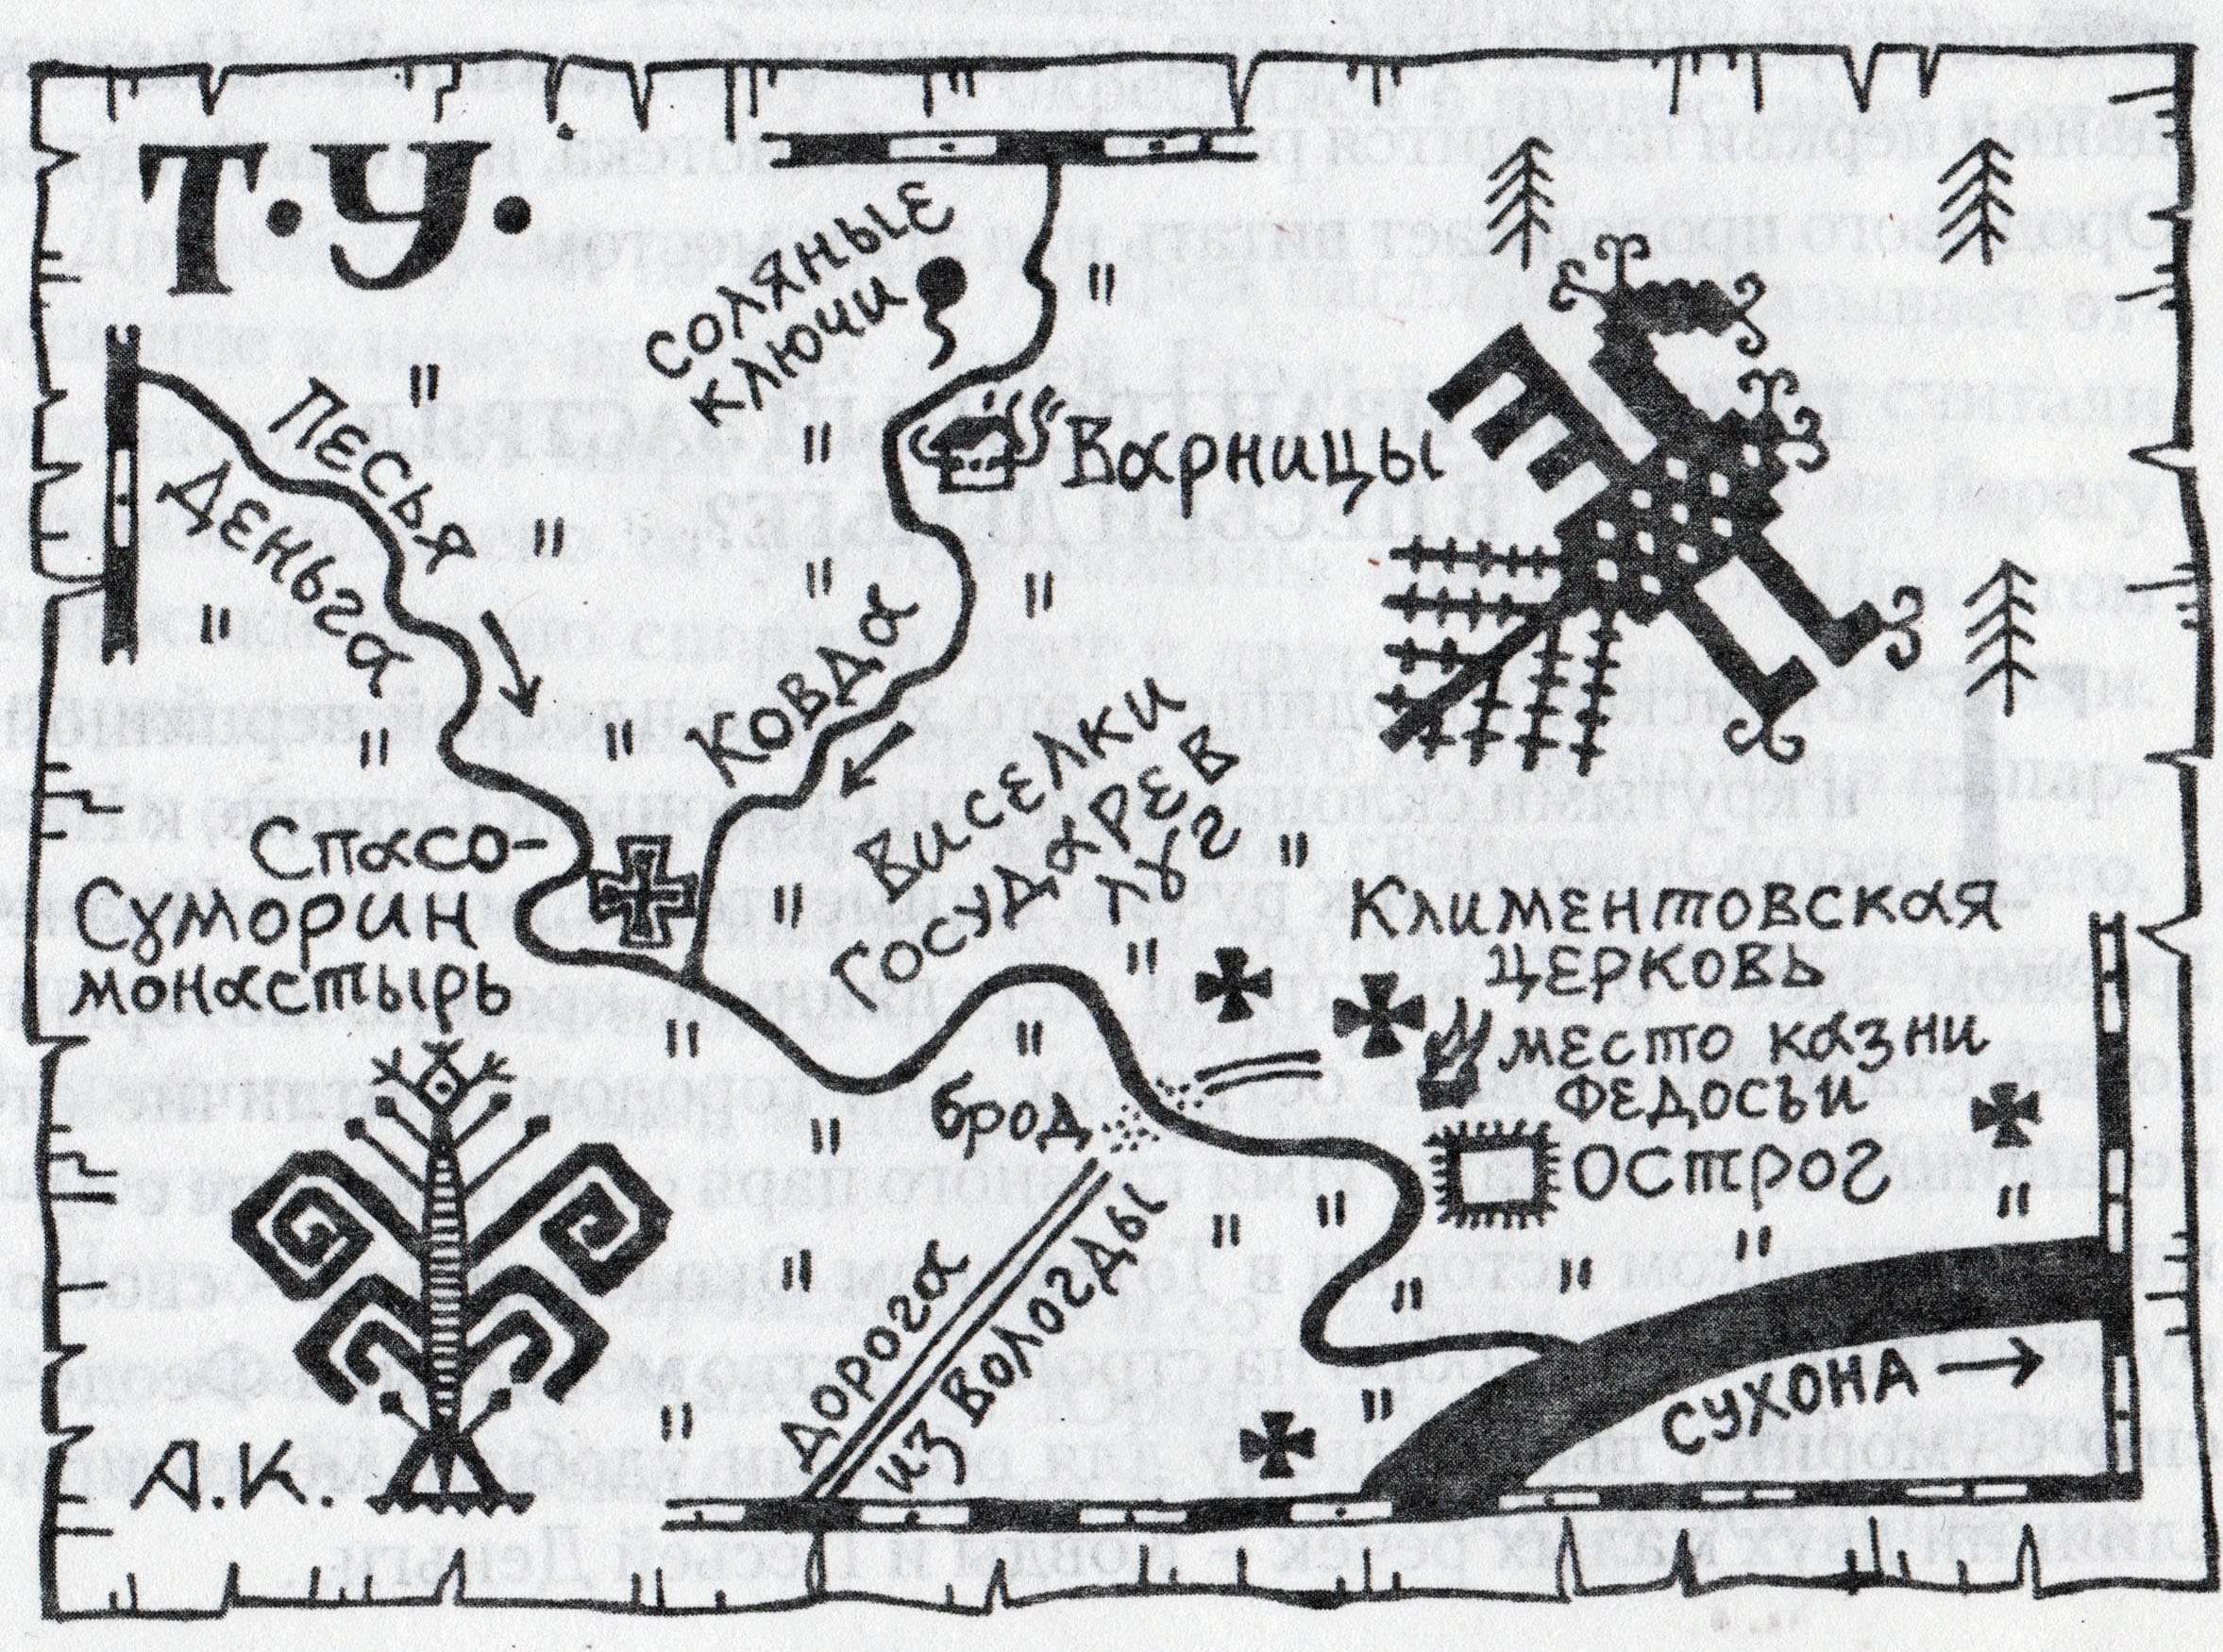 Т.У.
СОЛЯНЫЕ
КЛЮЧИ
ПЕСЬЯ
ДЕНЬГА
Варницы
КОВДА
ВИСЕЛКИ
ГОСУДАРЕВ
ЛУГ
Спасо-
Суморин
монастырь
Климентовская
церковь
место казни
Федосьи
брод
острог
дорога
из Вологды
СУХОНА
А.К.